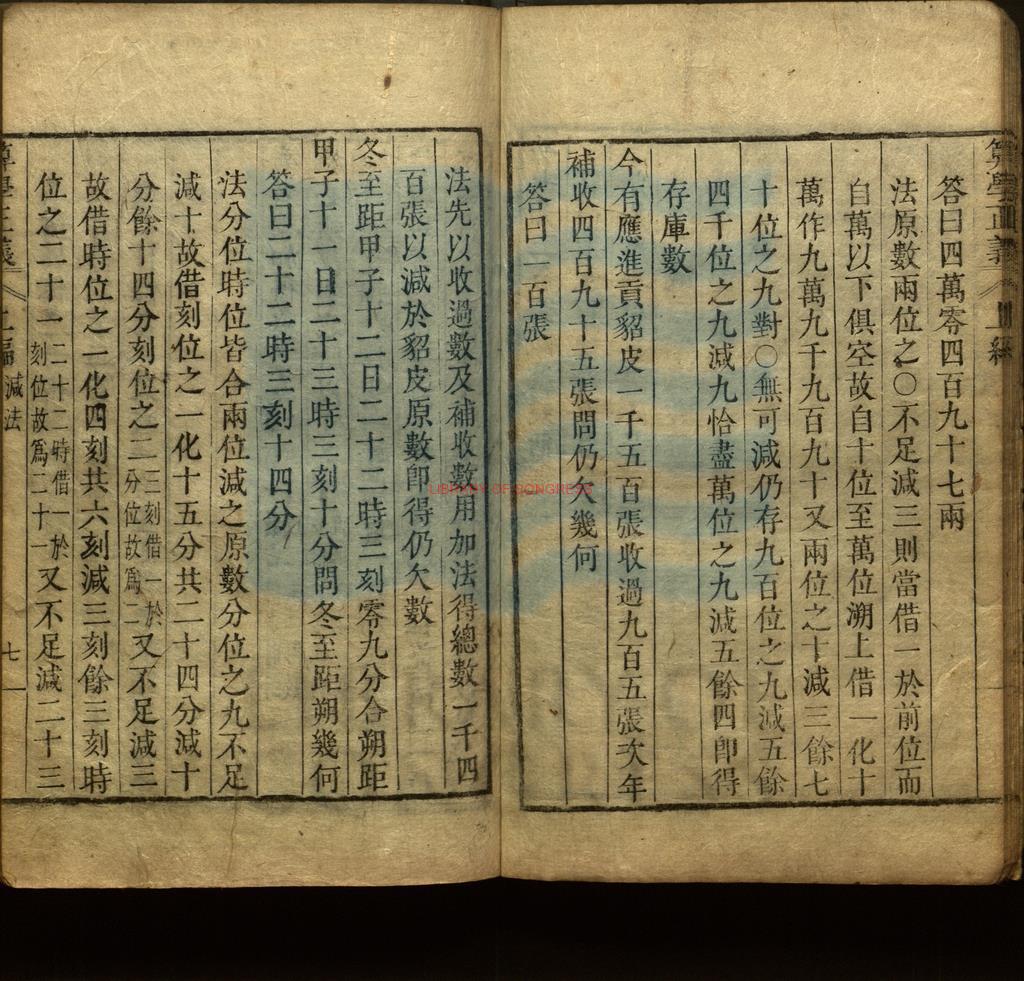 答曰四萬零四百九十七兩
法原數兩位之〇不足減三則當借一於前位而
自萬以下俱空故自十位至萬位溯上借一化十
萬作九萬九千九百九十又兩位之十減三餘七
十位之九對〇無可減仍存九百位之九減五餘
四千位之九減九恰盡萬位之九減五餘四卽得
存庫數
今有應進貢貂皮一千五百張收過九百五張次年
補收四百九十五張問仍欠幾何
答曰一百張
法先以收過數及補收數用加法得總數一千四
百張以減於貂皮原數卽得仍欠數
冬至距甲子十二日二十二時三刻零九分合朔距
甲子十一日二十三時三刻十分問冬至距朔幾何
答曰二十二時三刻十四分
法分位時位皆合兩位減之原數分位之九不足
減十故借刻位之一化十五分共二十四分減十
分餘十四分刻位之二三刻借一於分位故爲二又不足減三
故借時位之一化四刻共六刻減三刻餘三刻時
位之二十一二十二時借一於刻位故爲二十一又不足減二十三
減法
七
LIBRARY OF CONGRESS